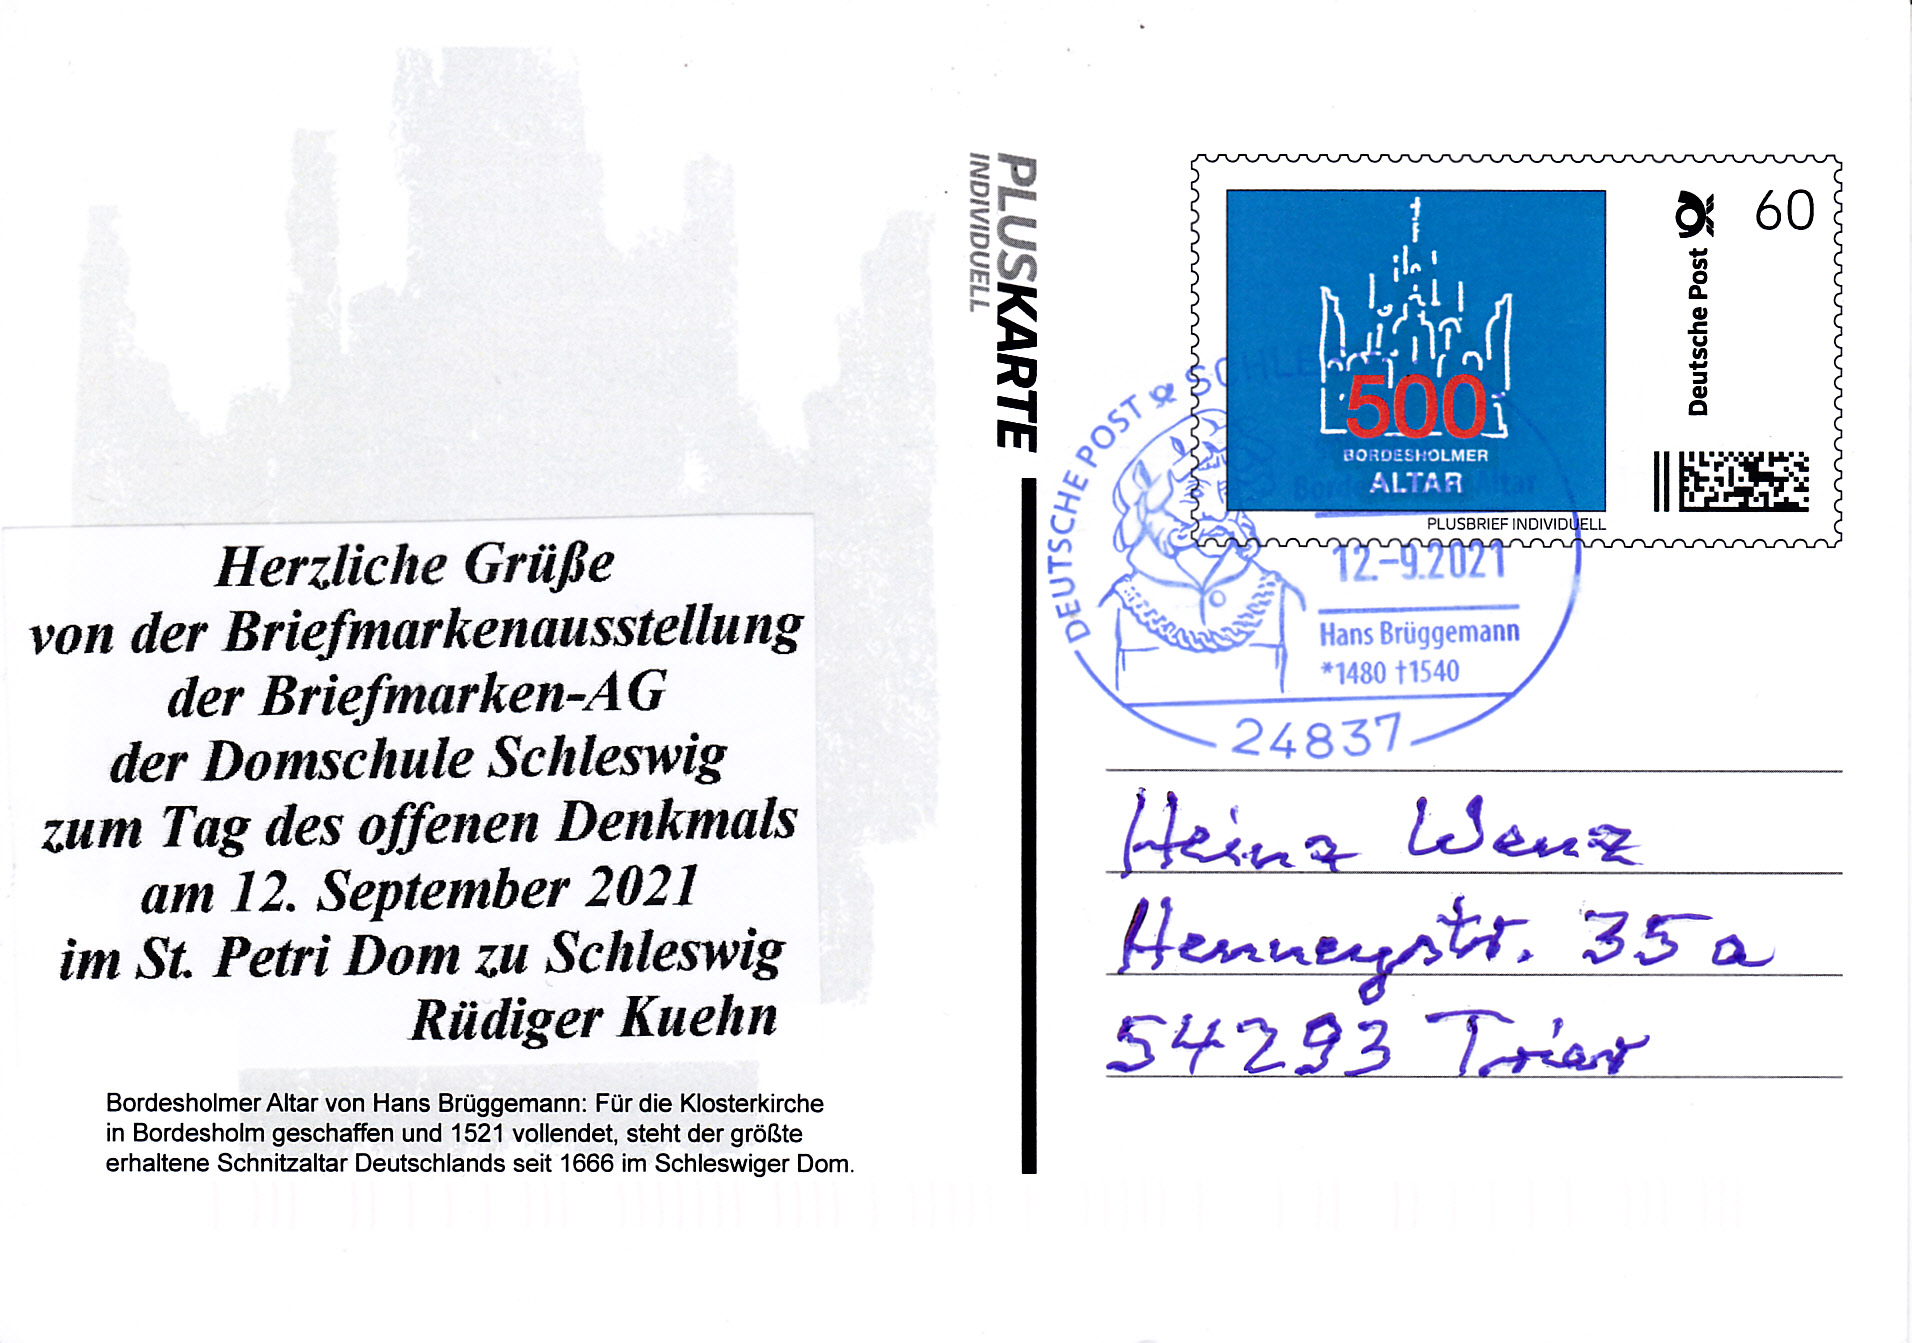 Herzliche Grüße
von der Briefmarkenausstellung
der Briefmarken-AG
der Domschule Schleswig
zum Tag des offenen Denkmals
am 12. September 2021
im St. Petri Dom zu Schleswig
Rüdiger Kuehn
Bordesholmer Altar von Hans Brüggemann: Für die Klosterkirche
in Bordesholm geschaffen und 1521 vollendet, steht der größte
erhaltene Schnitzaltar Deutschlands seit 1666 im Schleswiger Dom.
PLUSKARTE
INDIVIDUELL
500
BORDESHOLMER
ALTAR
PLUSBRIEF INDIVIDUELL
Deutsche Post
60
DEUTSCHE POST
12.-9.2021
Hans Brüggemann
*1480 †1540
24837
Heinz Wenz
35 a
54293 Trier